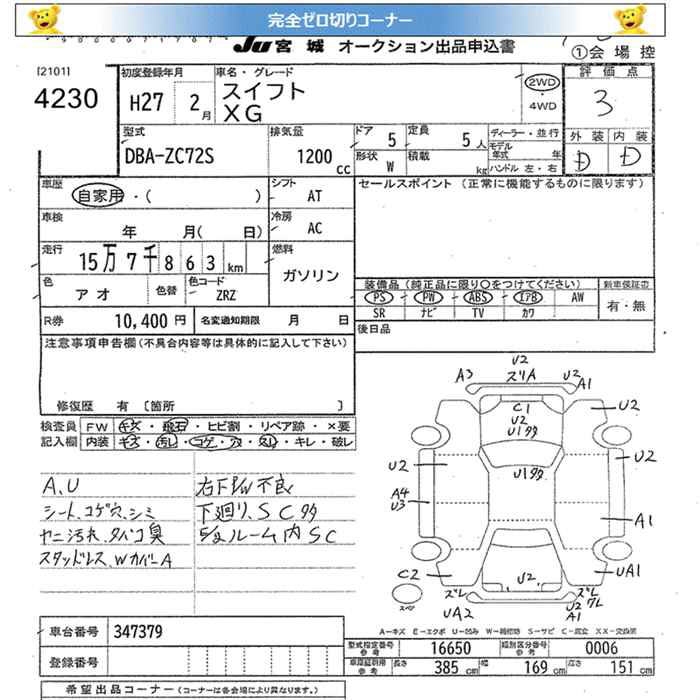 完全ゼロ切りコーナー
JU 宮城 オークション出品申込書
①会場控
[2101]
4230
初度登録年月
H27 2月
車名・グレード
スイフト
XG
2WD
・
4WD
評価点
3
外装 内装
D D
型式
DBA-ZC72S
排気量
1200 cc
ドア 5
定員 5人
形状 W
積載 kg
ディーラー・並行
モデル年式 年
ハンドル 左・右
車歴
自家用・( )
シフト AT
セールスポイント (正常に機能するものに限ります)
車検
年 月( 日)
冷房 AC
走行
15万7千863km
燃料
ガソリン
色 アオ
色替
色コード ZRZ
装備品(純正品に限り○をつけてください)
新車保証書
PS PW ABS エアB AW
有・無
SR ナビ TV カワ
R券 10,400円
名変通知期限 月 日
後日品
注意事項申告欄(不具合内容等は具体的に記入して下さい)
修復歴 有 [箇所 ]
検査員
記入欄
FW キズ・飛石・ヒビ割・リペア跡・×要
内装 キズ・汚れ・コゲ・穴・スレ・キレ・破レ
A、U
シート、コゲ穴、シミ
ヤニ汚れ、タバコ臭
スタッドレス、WカバーA
右下P/W不良
下廻り、SC多
ルーム内SC
U2
A3 スリA U2 A1
C1
U2
U1多
U2
U2
U1多
U2
A4
U3
A1
C2
U2
UA1
スペア
ズレ
UA2
ズレ
ワレ
U2
A1
A-キズ E-エクボ U-凹み W-補修跡 S-サビ C-腐食 XX-交換済
車台番号 347379
型式指定番号
参考 16650
類別区分番号
参考 0006
登録番号
車庫証明用
参考 長さ 385 cm 幅 169 cm 高さ 151 cm
希望出品コーナー (コーナーは各会場により異なります。)